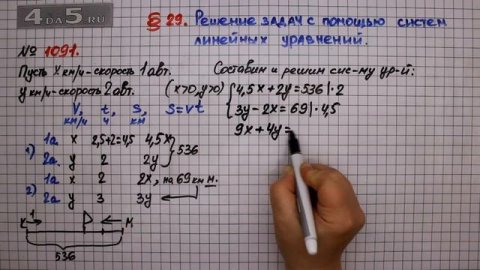 4DA5.RU
§ 29. Решение задач с помощью систем
линейных уравнений.
№ 1091.
Пусть x км/ч - скорость 1 авт.
y км/ч - скорость 2 авт. (x>0, y>0)
V, t, S, S=vt
км/ч ч км
1) 1а x 2,5+2=4,5 4,5x
2а y 2 2y
536
2) 1а x 2 2x, на 69 км м.
2а y 3 3y
К 1 М
536
Составим и решим сис-му ур-й:
4,5x+2y=536 | ·2
3y-2x=69 | ·4,5
9x+4y=